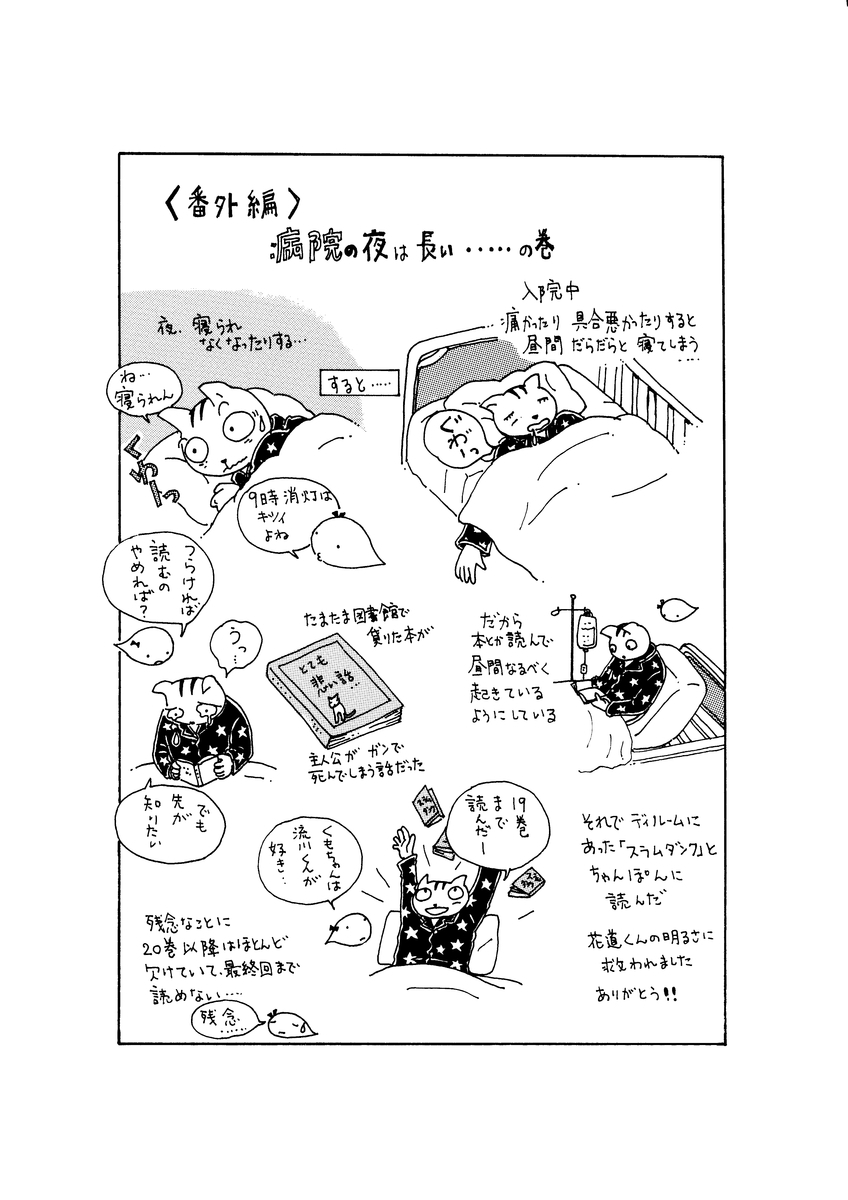 〈番外編〉
病院の夜は長い・・・・・の巻
入院中
痛かったり 具合悪かったりすると
昼間 だらだらと 寝てしまう
・・・・
ぐわーっ
すると・・・・・
夜、寝られ
なくなったりする・・・
ね・・・
寝られん
9時消灯は
キツイ
よね
だから
本とか読んで
昼間なるべく
起きている
ようにしている
たまたま図書館で
貸りた本が
とても
悲しい話・・・
主人公が ガンで
死んでしまう話だった
つらければ
読むの
やめれば?
うっ・・・
でも
先が
知りたい
それで デイルームに
あった「スラムダンク」と
ちゃんぽんに
読んだ
花道くんの明るさに
救われました
ありがとう!!
19巻
まで
読んだー
スラム
ダンク
スラム
ダンク
くもちゃんは
流川くんが
好き・・・
残念なことに
20巻以降はほとんど
欠けていて、最終回まで
読めない・・・・
残念
・・・・・